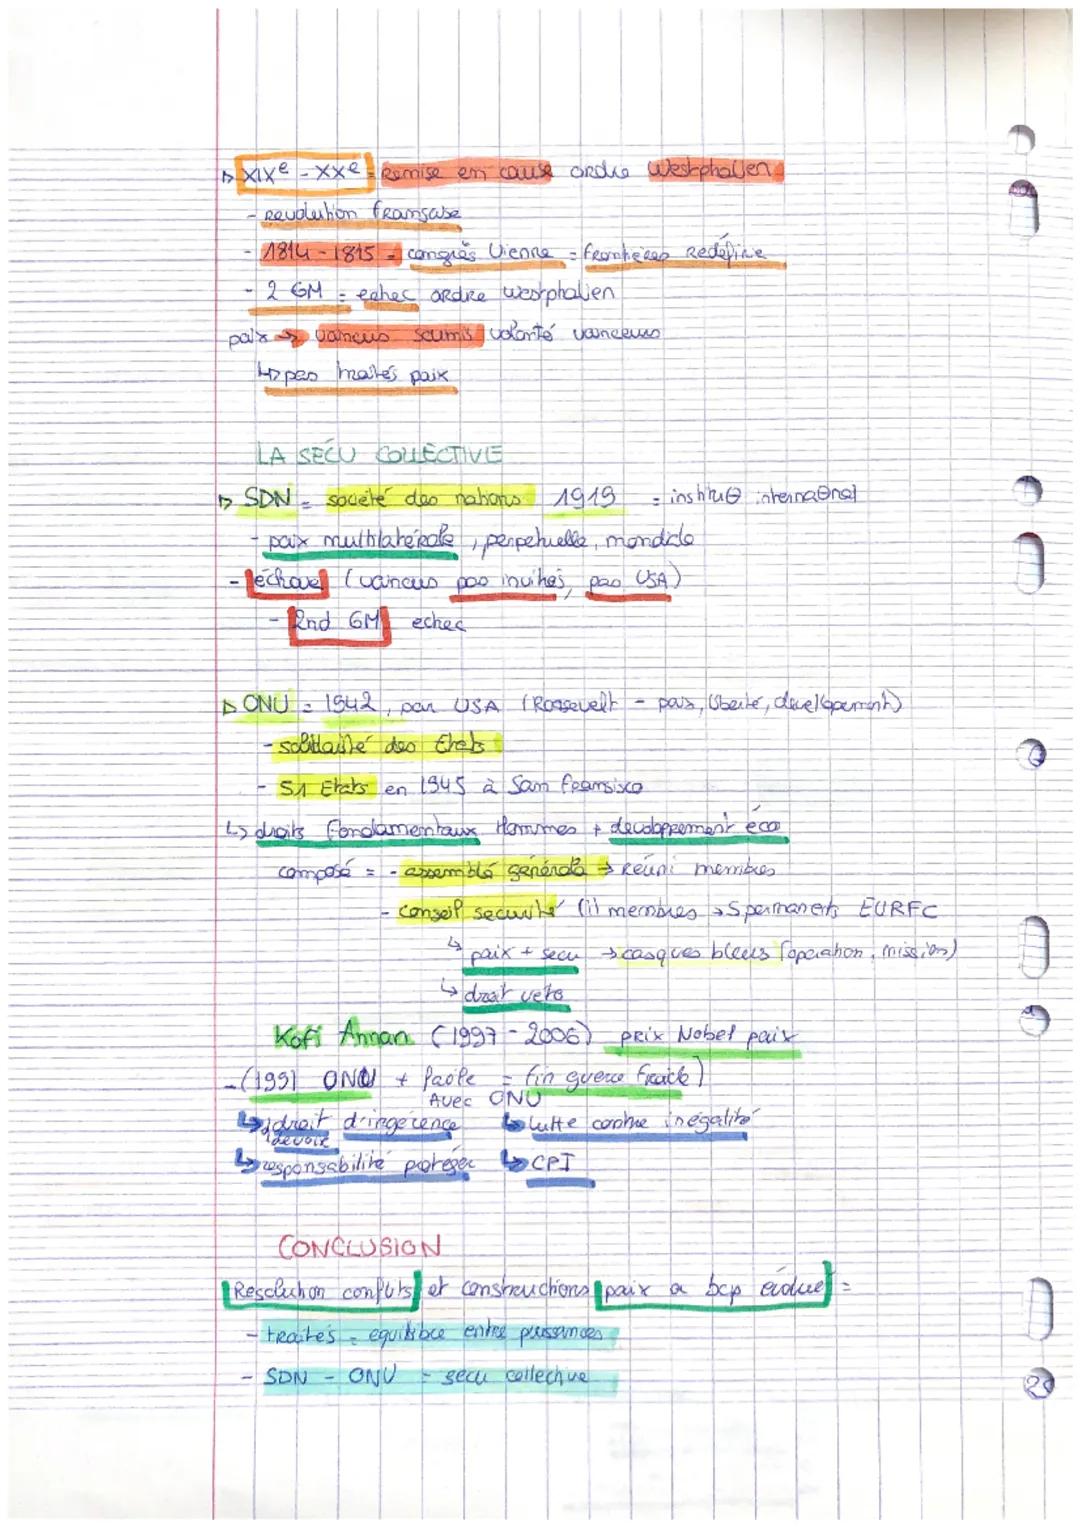 ▷ XIXe - XXe = Remise en cause ordre Westphalien
- Revolution française
- 1814 - 1815 = congrès Vienne = frontières Redéfinie
- 2 GM = echec ordre westphalien
paix → vaincus soumis volonté vainceurs
↳ pas traités paix
LA SÉCU COLLECTIVE
▷ SDN = société des nations 1919 = institu⊖ interna⊖nal
- paix multilatérale, perpetuelle, mondiale
- échoue (vaincus pas invités, pas USA)
- 2nd GM echec
▷ ONU = 1942, par USA (Roosevelt - paix, liberté, developement)
- solidarité des Etats
- 51 Etats en 1945 à San Fransisco
↳ droits fondamentaux Hommes + developpement éco
composé = - assemblé générale → Réuni membres
- conseil sécurité (11 membres → 5 permanents EURFC
↳ paix + secu → casques bleus (opération, mission)
↳ droit veto
Kofi Annan (1997 - 2006) prix Nobel paix
- (1991 ONU + faible = fin guerre froide)
Avec ONU
↳ droit d'ingérence ↳ Lutte contre inégalité
devoir
↳ responsabilité protéger ↳ CPI
CONCLUSION
Resolution conflits et constructions paix a bcp évolué =
- traités = equilibre entre puissances
- SDN - ONU = secu collective